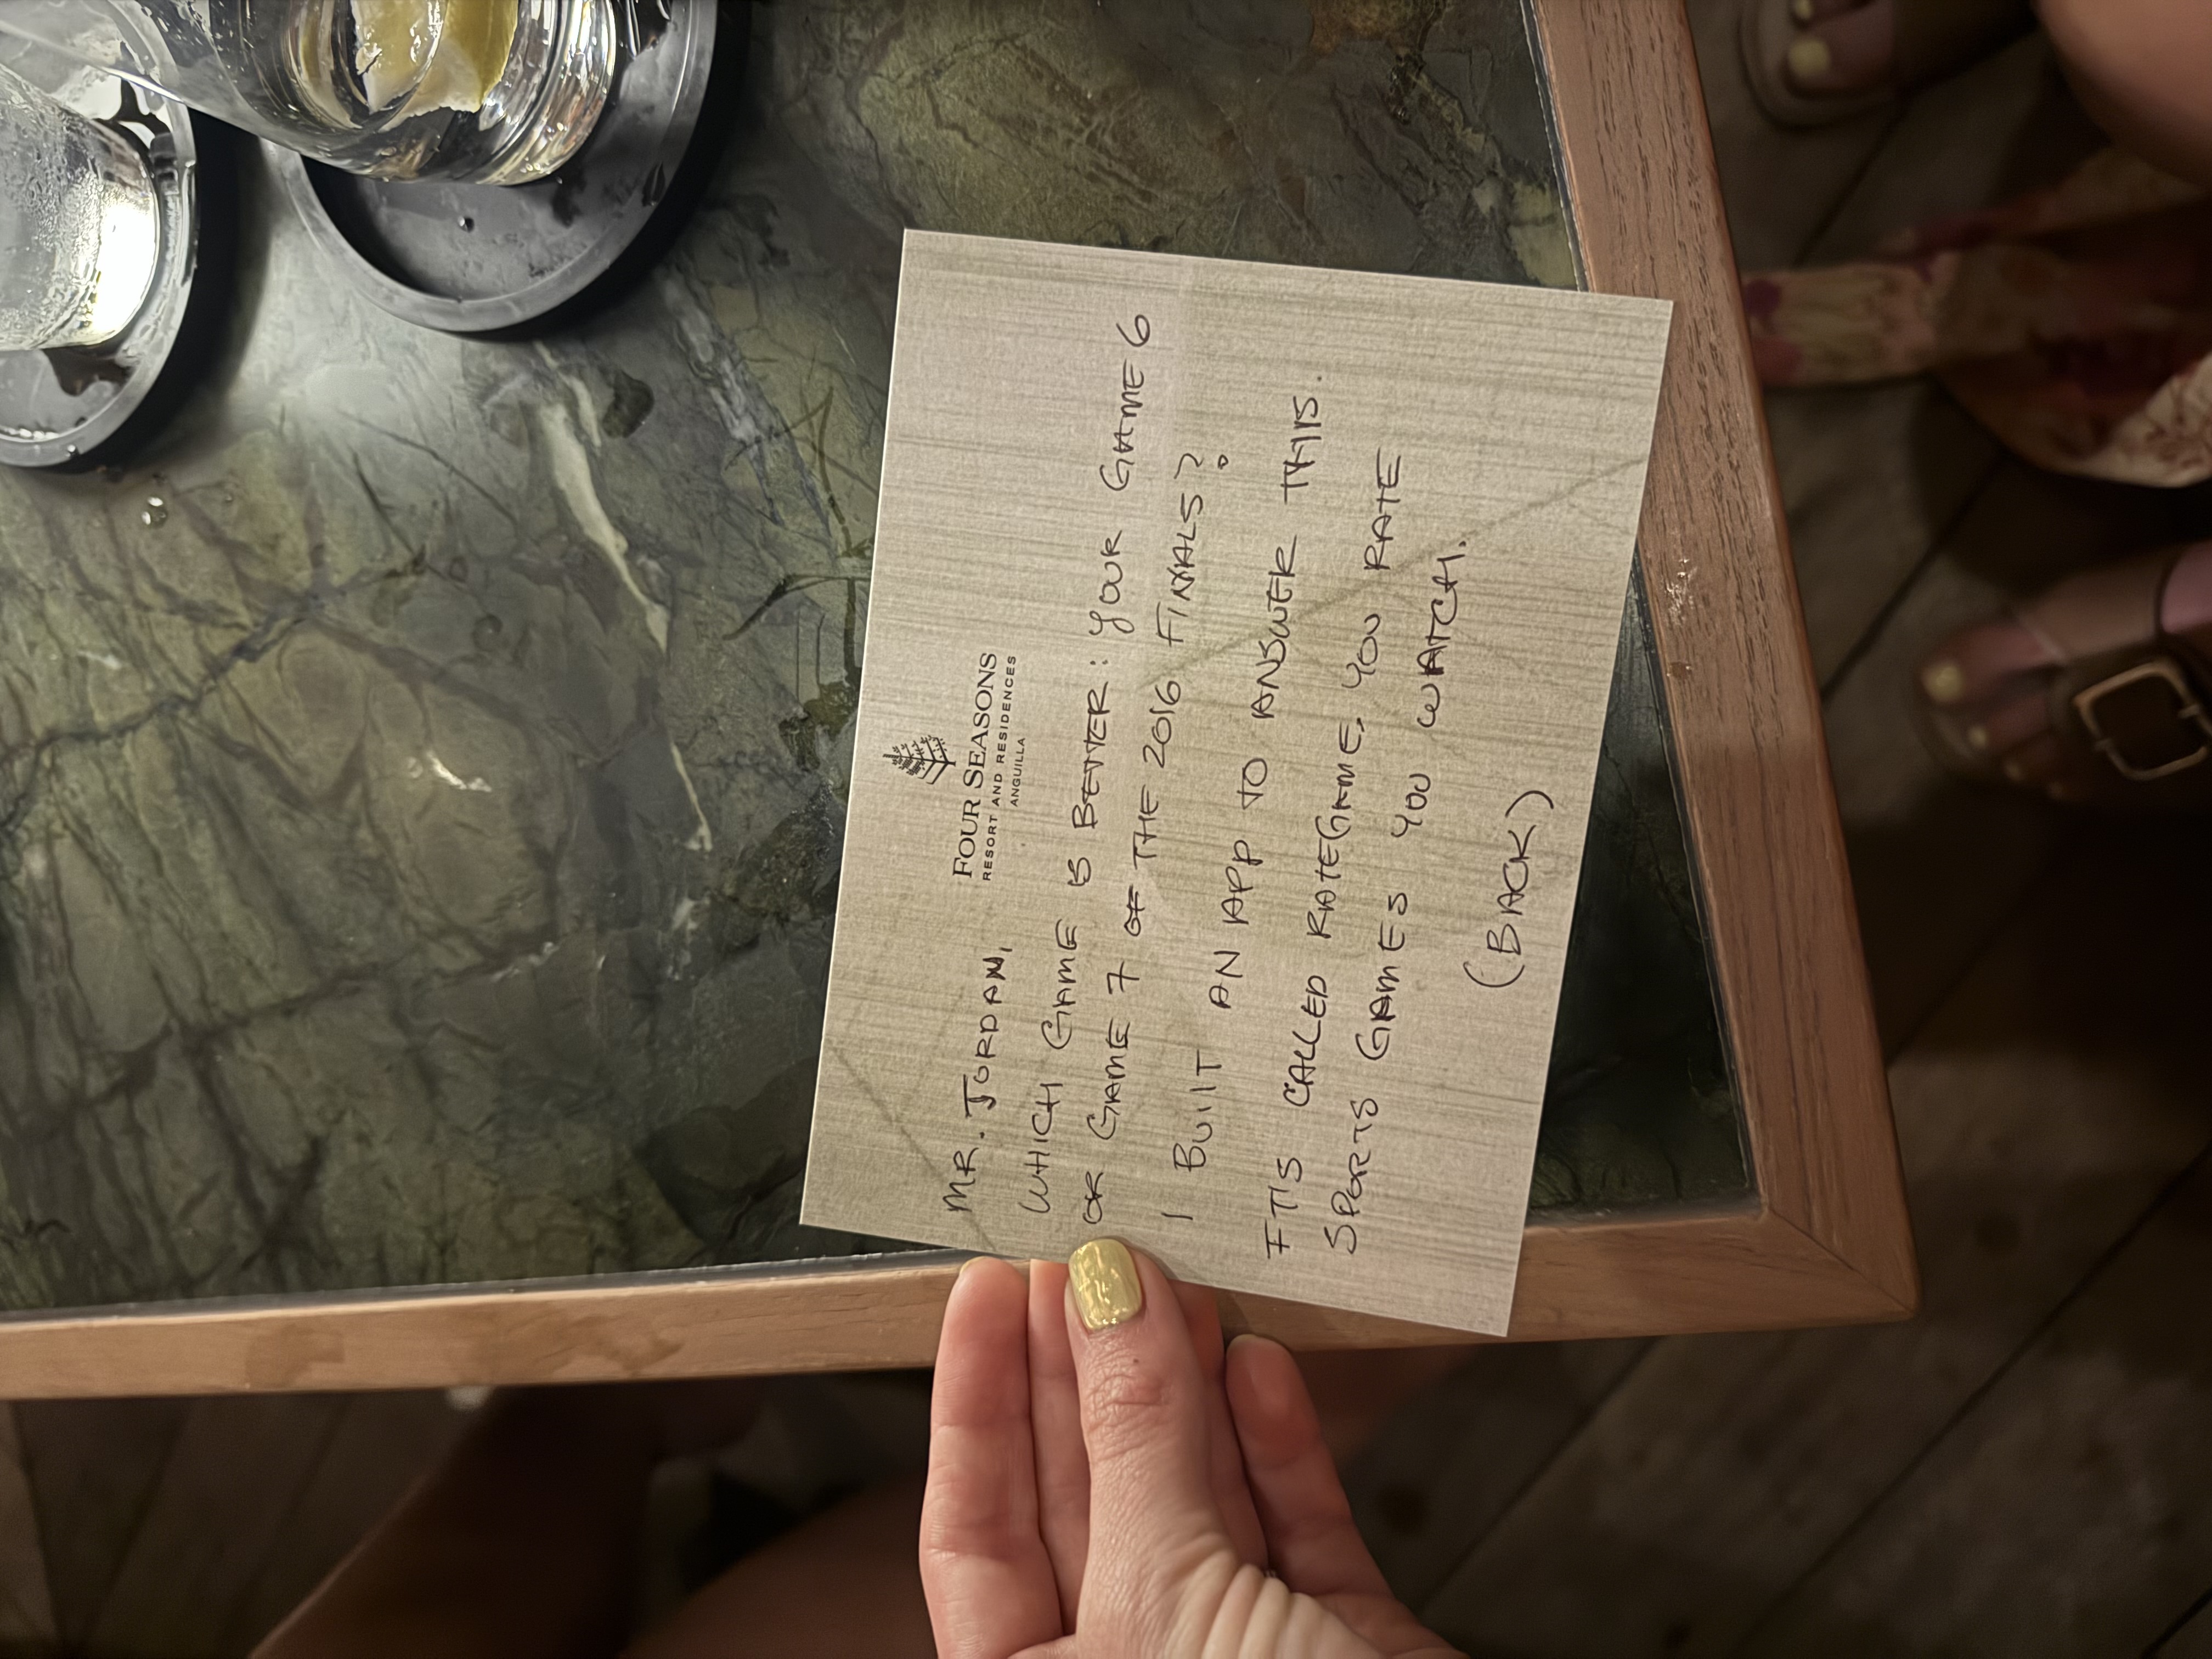 FOUR SEASONS
RESORT AND RESIDENCES
ANGUILLA
MR. JORDAN,
WHICH GAME IS BETTER: YOUR GAME 6
OR GAME 7 OF THE 2016 FINALS?
I BUILT AN APP TO ANSWER THIS.
IT'S CALLED RATEGAME, YOU RATE
SPORTS GAMES YOU WATCH.
(BACK)